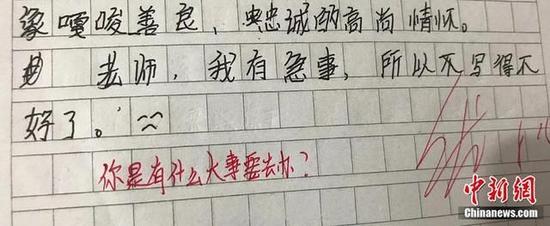 象嘎唆善良、忠诚的高尚情怀。
老师，我有急事，所以不写得不
好了。
你是有什么大事要去办？
中新网
Chinanews.com